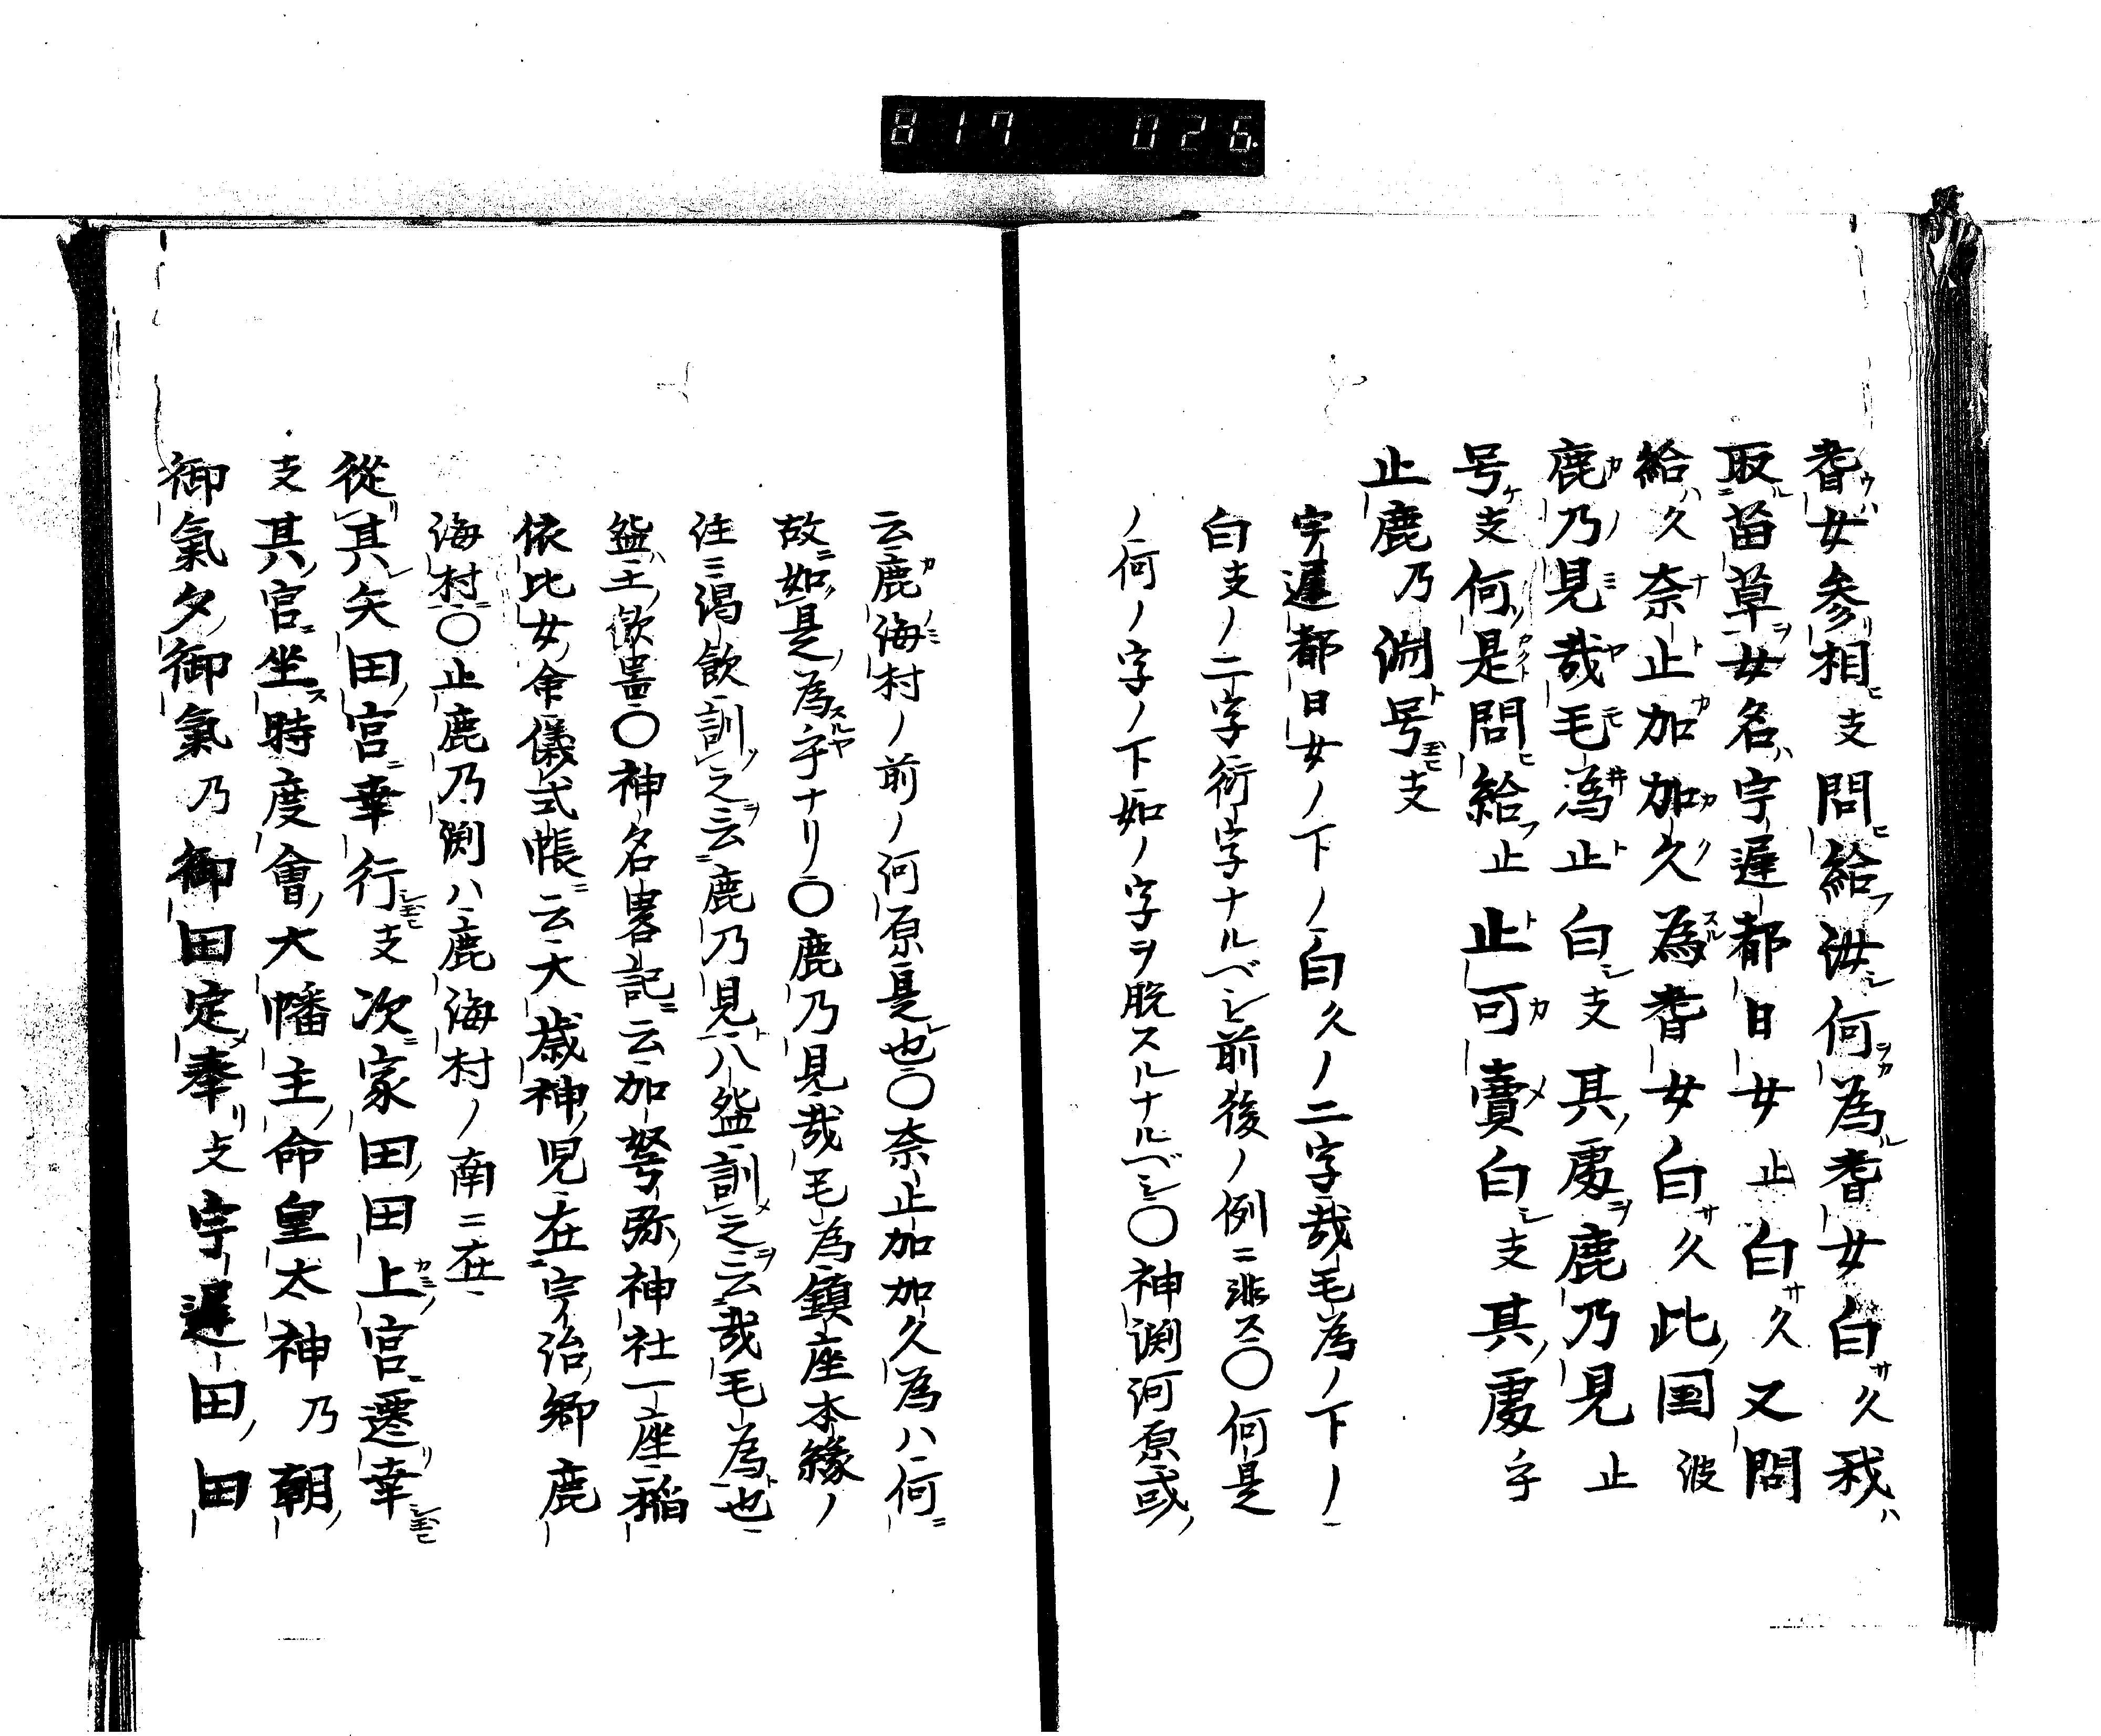 817 026
耆女参相支問給汝何為耆女白久我
取苗草女名宇遅都日女止白久又問
給久奈止加加久為耆女白久此国波
鹿乃見哉毛為止白支其處鹿乃見止
号支何是問給止止可賣白支其處乎
止鹿乃渕号支
宇遅都日女ノ下ノ白久ノ二字哉毛為ノ下ノ
白支ノ二字衍字ナルベシ前後ノ例ニ非ス〇何是
ノ何ノ字ノ下如ノ字ヲ脱スルナルベシ〇神渕河原或
云鹿海村ノ前ノ河原是也〇奈止加加久為ハ何
故如是為字ナリ〇鹿乃見哉毛為鎮座本縁ノ
注ニ渇飲訓之云鹿乃見八盌訓之云哉毛為也
盌主飲器〇神名畧記云加努弥神社一座稲
依比女命儀式帳云大歳神児在宇治郷鹿
海村〇止鹿乃渕ハ鹿海村ノ南ニ在
從其矢田宮幸行支次家田田上宮遷幸
支其宮坐時度會大幡主命皇太神乃朝
御氣夕御氣乃御田定奉支宇遅田田